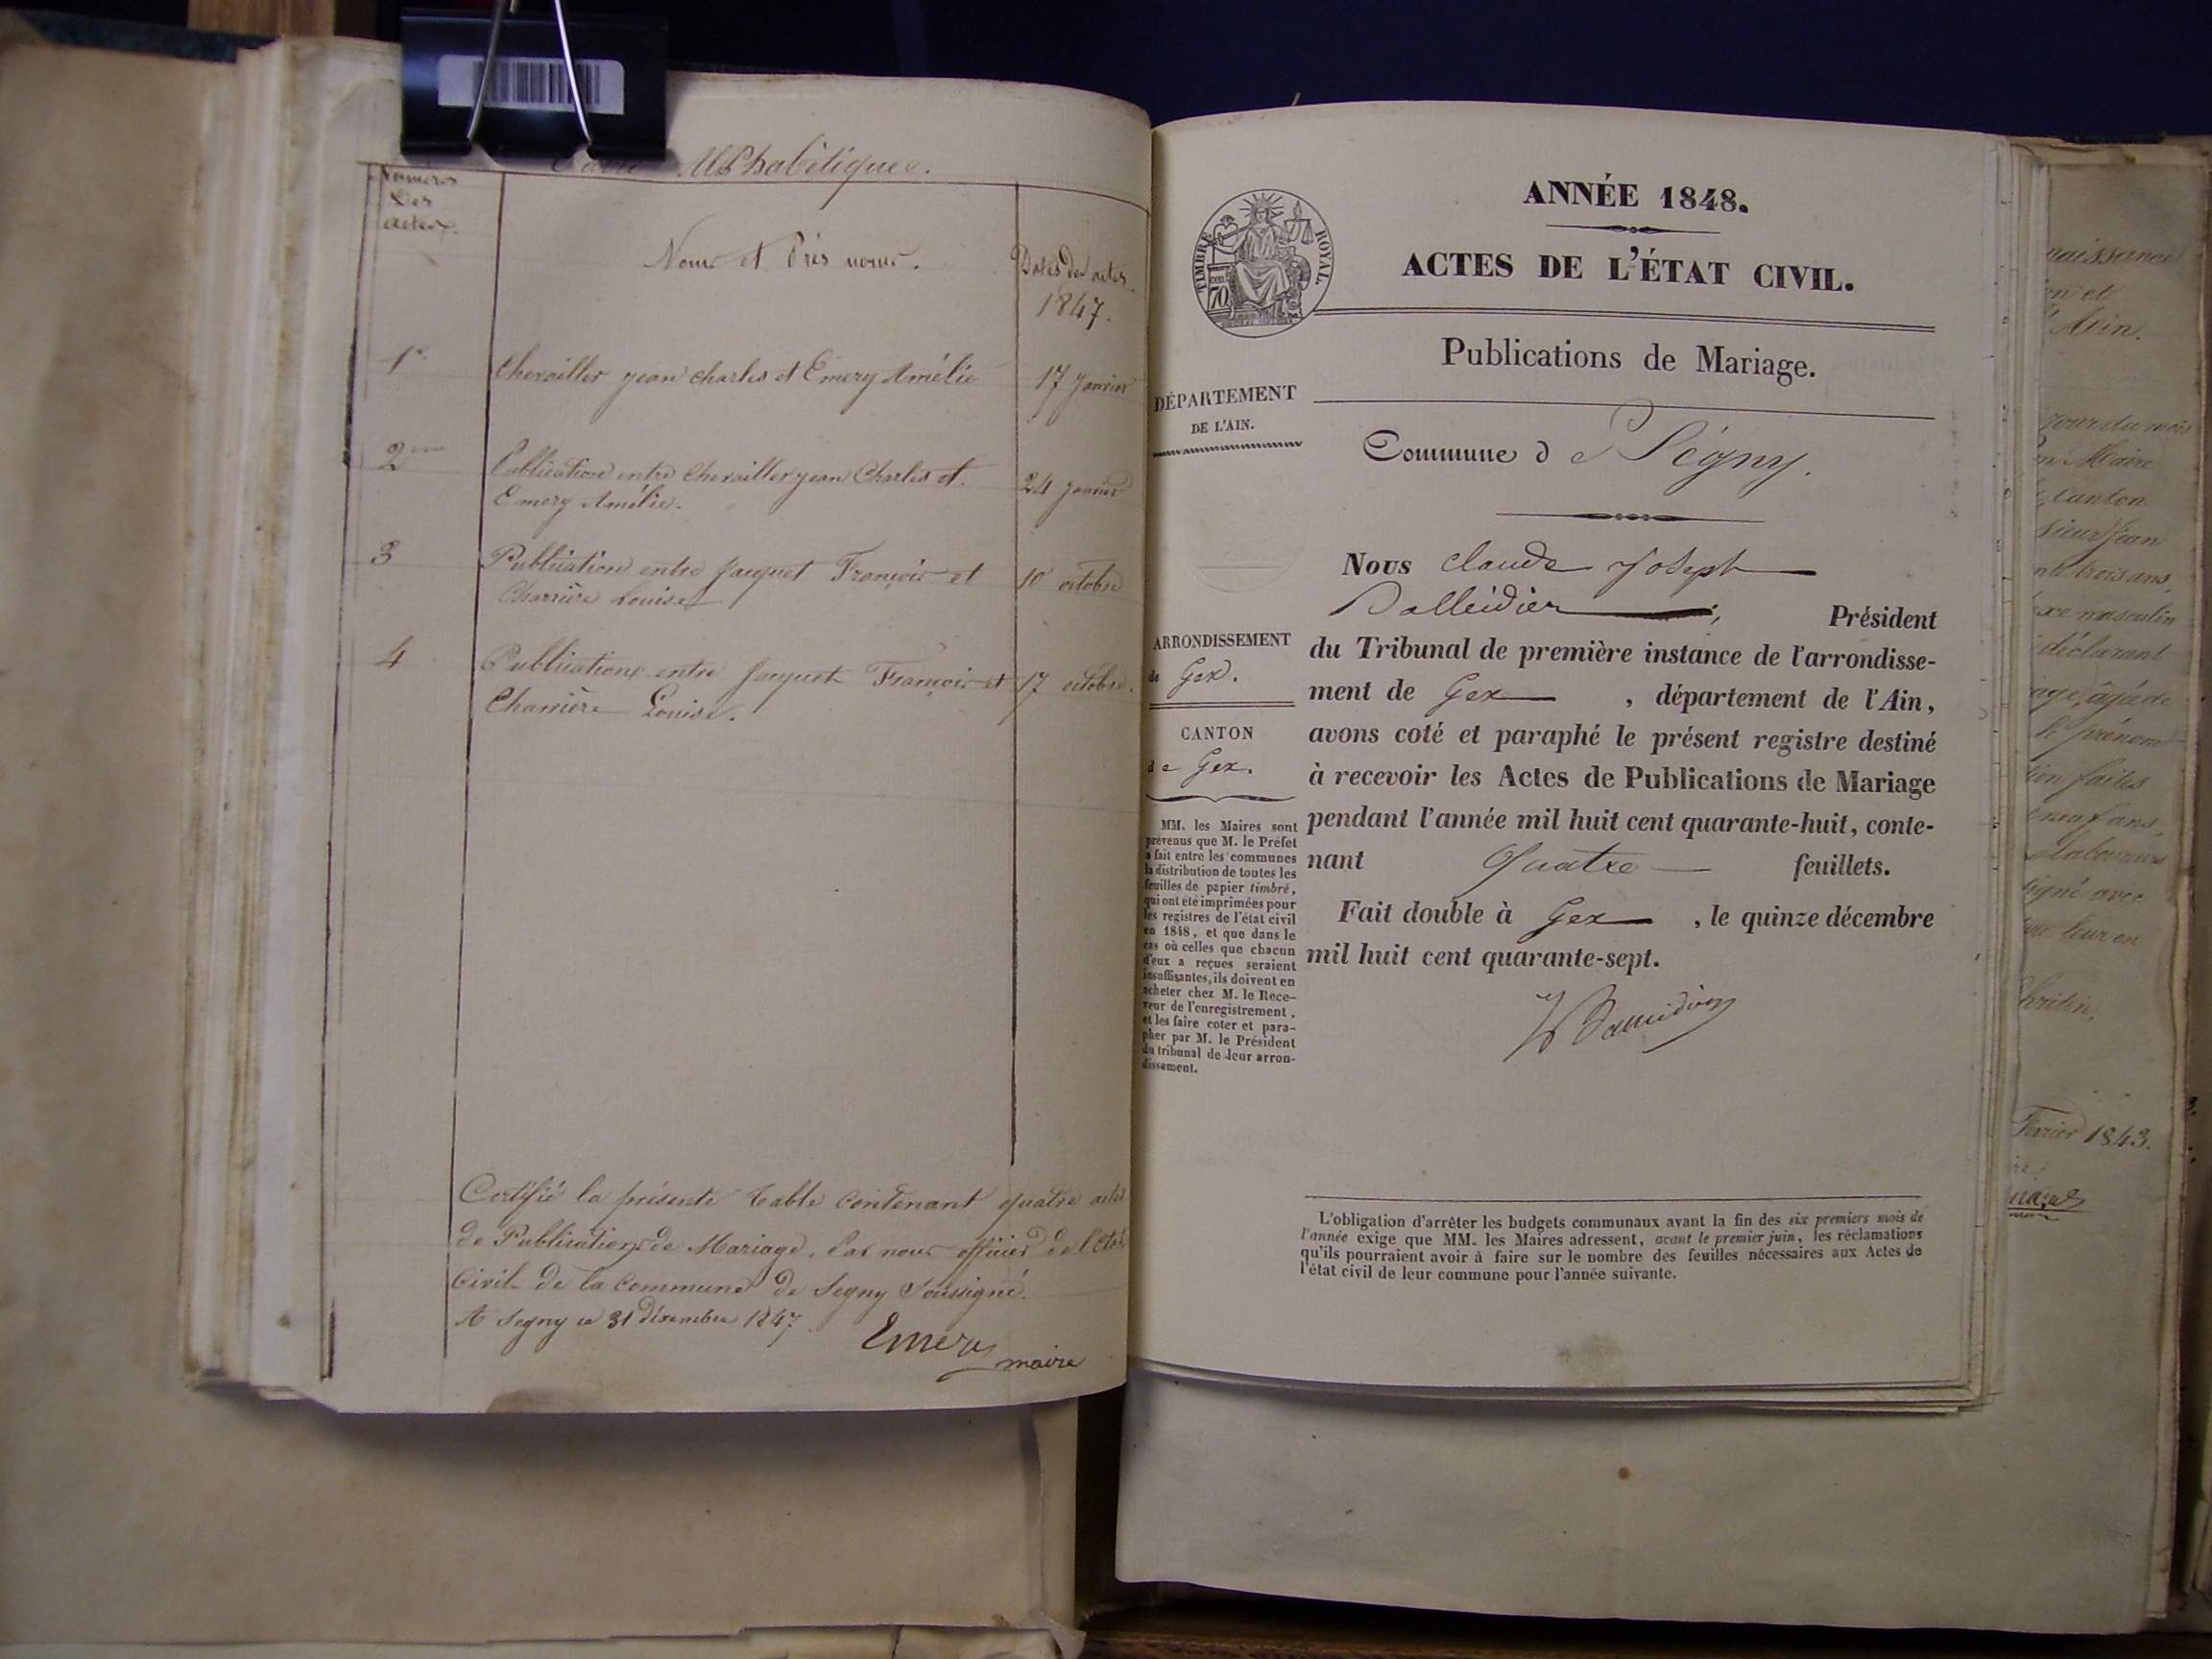 Alphabétique.
Numéros
des
actes.
Noms et Prés noms.
Dates des actes
1847.
1er
Chevailler jean charles et Emery Amélie
17 janvier
2eme
Publication entre Chevailler jean Charles et
Emery Amélie.
24 janvier
3
Publication entre Jacquet François et
Charrière Louise
10 octobre
4
Publications entre Jacquet François et
Charrière Louise.
17 octobre.
Certifié la présente table contenant quatre actes
de Publications de Mariage, Par nous officier de l'état
Civil de la Commune de Segny Soussigné.
A Segny ce 31 Décembre 1847.
Emery
maire
ANNÉE 1848.
ACTES DE L'ÉTAT CIVIL.
TIMBRE ROYAL
70
Publications de Mariage.
DÉPARTEMENT
DE L'AIN.
Commune de Ségny.
Nous Claude Joseph
Président
du Tribunal de première instance de l'arrondisse-
ment de Gex , département de l'Ain,
avons coté et paraphé le présent registre destiné
à recevoir les Actes de Publications de Mariage
pendant l'année mil huit cent quarante-huit, conte-
nant Quatre feuillets.
Fait double à Gex , le quinze décembre
mil huit cent quarante-sept.
ARRONDISSEMENT
de Gex.
CANTON
de Gex.
MM. les Maires sont
prévenus que M. le Préfet
a fait entre les communes
la distribution de toutes les
feuilles de papier timbré,
qui ont été imprimées pour
les registres de l'état civil
en 1848, et que dans le
cas où celles que chacun
d'eux a reçues seraient
insuffisantes, ils doivent en
acheter chez M. le Rece-
veur de l'enregistrement,
et les faire coter et para-
pher par M. le Président
du tribunal de leur arron-
dissement.
L'obligation d'arrêter les budgets communaux avant la fin des six premiers mois de
l'année exige que MM. les Maires adressent, avant le premier juin, les réclamations
qu'ils pourraient avoir à faire sur le nombre des feuilles nécessaires aux Actes de
l'état civil de leur commune pour l'année suivante.
naissance
on et
l'Ain.
jour du mois
Maire
Canton
sieur Jean
trois ans,
sexe masculin
déclarant
âgé de
le prénom
faites
neuf ans,
signé avec
Février 1843.